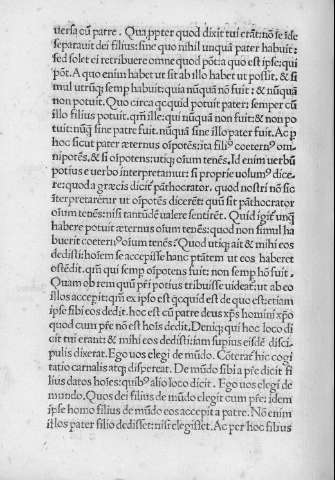 uersa cū patre. Qua ꝓpter quod dixit tui erāt: nō se ide
separauit dei filius: sine quo nihil unquā pater habuit:
sed solet ei retribuere omne quod pōt: a quo est ipse: qui
pōt. A quo enim habet ut sit ab illo habet ut possit. & si
mul utrūq; semp habuit: quia nūquā nō fuit: & nūquā
non potuit. Quo circa qcquid potuit pater: semper cū
illo filius potuit. qm̄ ille: qui nūquā non fuit: & non po
tuit: nūq̄ sine patre fuit. nūquā sine illo pater fuit. Ac p
hoc sicut pater æternus oīpotēs: ita fili⁹ coetern⁹ om̄i
potēs. & si oīpotens: utiq; oīum tenēs. Id enim uerbū
potius e uerbo interpretamur: si proprie uolum⁹ dice
re: quod a græcis dicit̄ pāthocrator. quod nostri nō sic
īterpretarētur ut oīpotēs dicerēt: quū sit pāthocrator
oīum tenēs: nisi tantūdē ualere sentirēt. Quid igit̄ unq̄
habere potuit æternus oīum tenēs: quod non simul ha
buerit coetern⁹ oīum tenēs? Quod utiq; ait & mihi eos
dedisti: hoīem se accepisse hanc ptātem ut eos haberet
ostēdit. qm̄ qui semp oīpotens fuit: non semp hō fuit.
Quam ob rem quū pr̄i potius tribuisse uideat̄ ut ab eo
illos acceperit: qm̄ ex ipso est qcquid est de quo est: etiam
ipse sibi eos dedit. hoc est cū patre deus xp̄s homini xp̄o
quod cum pr̄e nō est hoīs dedit. Deniq; qui hoc loco di
cit tui erant: & mihi eos dedisti: iam supius eisdē disci
pulis dixerat. Ego uos elegi de mūdo. Cōterat̄ hic cogi
tatio carnalis atq; dispereat. De mūdo sibi a pr̄e dicit fi
lius datos hoīes: quib⁹ alio loco dicit. Ego uos elegi de
mundo. Quos dei filius de mūdo elegit cum pr̄e: idem
ipse homo filius de mūdo eos accepit a patre. Nō enim
illos pater filio dedisset: nisi elegisset. Ac per hoc filius